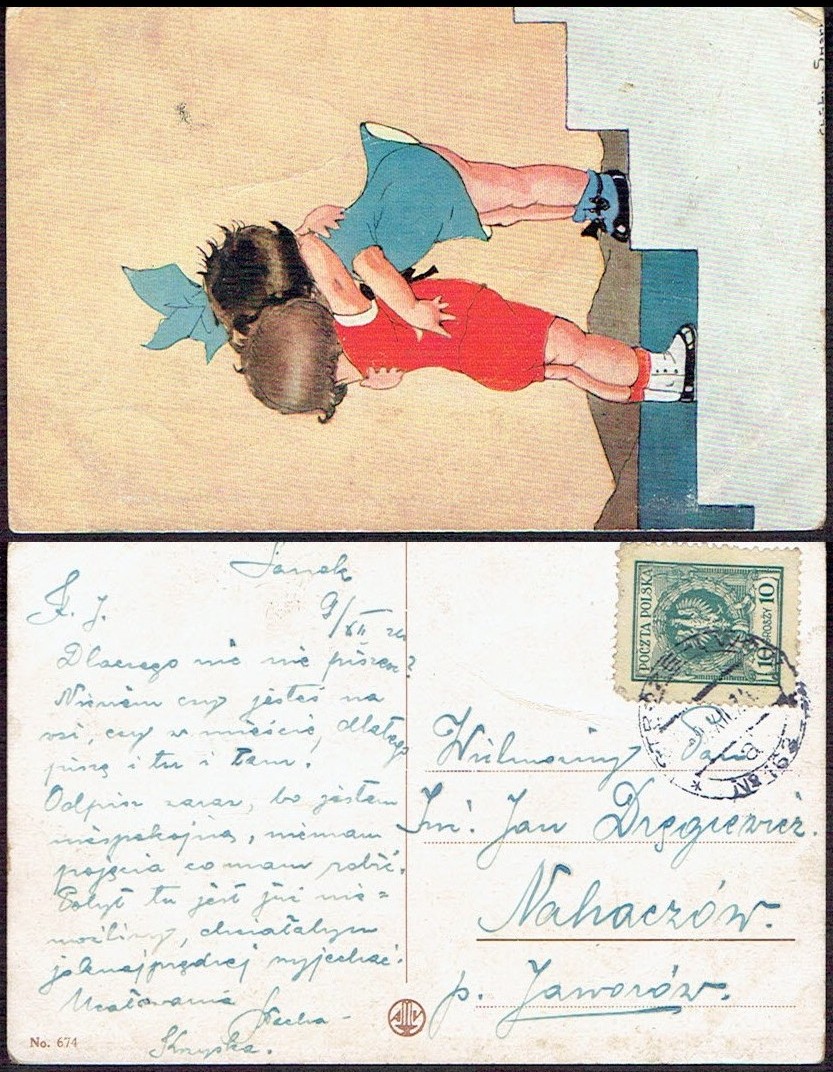 Sanok
9/XII 24
F. J.
Dlaczego nic nie piszesz?
Niewiem czy jesteś na
wsi, czy w mieście, dlatego
piszę i tu i tam.
Odpisz zaraz, bo jestem
niespokojna, niemam
pojęcia co mam robić.
Pobyt tu jest już nie=
możliwy, chciałabym
jaknajprędzej wyjechać.
Ucałowania
No. 674
POCZTA POLSKA
10 GROSZY 10
Wielmożny Pan
Inż. Jan Dręgiewicz.
Nahaczów.
p. Jaworów.